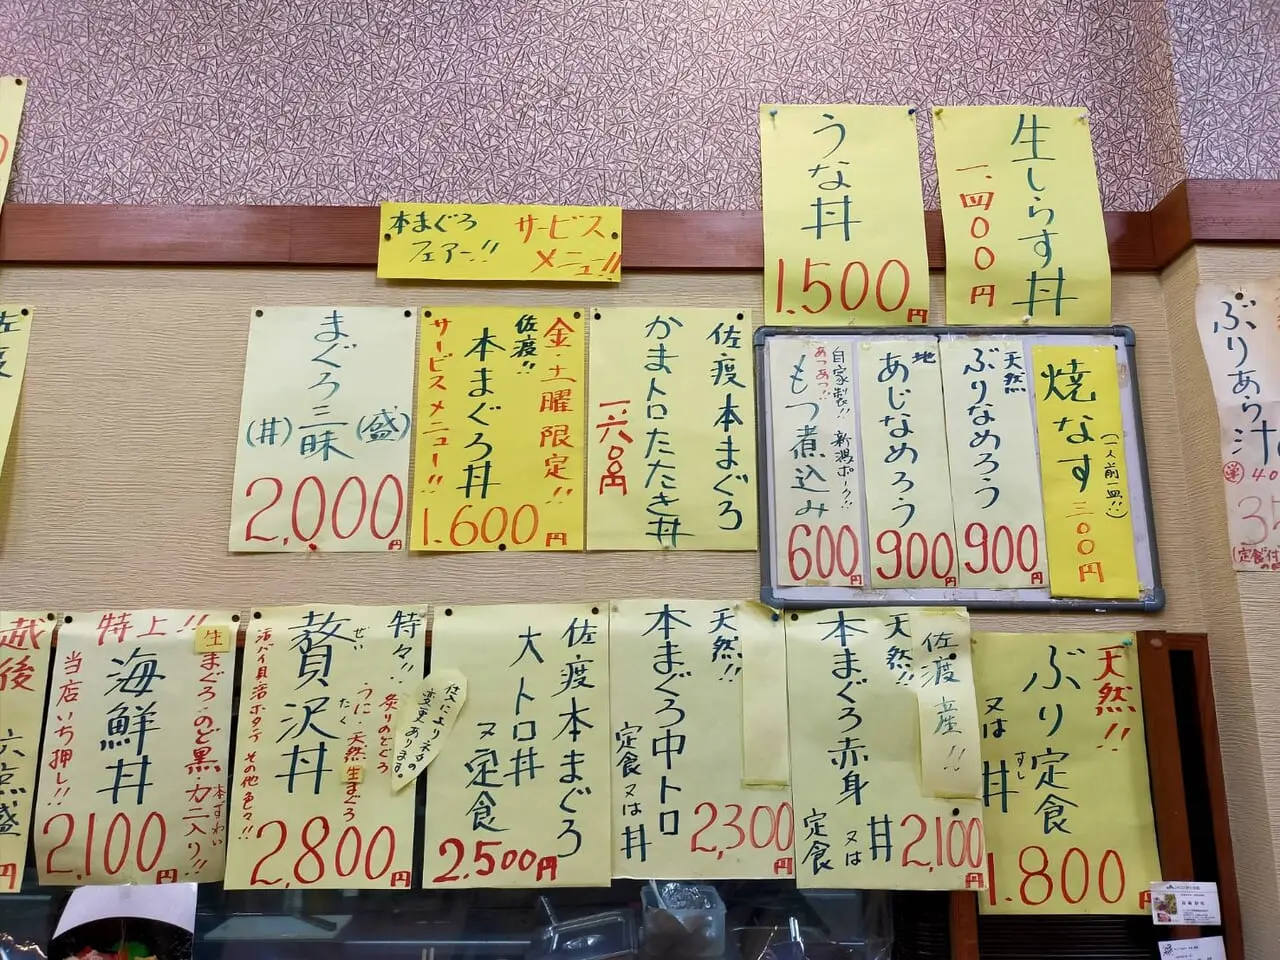 うな丼
1.500円
生しらす丼
一、四〇〇円
本まぐろ
フェアー!!
サービス
メニュー!!
まぐろ三昧
(丼)
(盛)
2,000円
金・土曜限定!!
佐渡!!
本まぐろ丼
サービスメニュー!!
1.600円
佐渡本まぐろ
かまトロたたき丼
一、六〇〇円
自家製!!
新潟ポーク!!
あつあつ!!
もつ煮込み
600円
地
あじなめろう
900円
天然
ぶりなめろう
900円
焼なす
(一人前一皿!!)
三〇〇円
ぶりあら汁
単
40
35
(定食付
佐渡
越後
六点盛
円
特上!!
生まぐろ・のど黒・カニ入り!!
本ずわい
海鮮丼
当店いち押し!!
2,100円
特々!!
ぜいたく
贅沢丼
炙りのどぐろ
うに・天然生まぐろ
活バイ貝活ホタテ その他色々!!
2,800円
仕入によりネタの
変更あります。
佐渡本まぐろ
大トロ丼
又定食
2.500円
天然!!
本まぐろ中トロ
定食又は丼
2,300円
佐渡産!!
天然!!
本まぐろ赤身
丼
又は
定食
2,100円
天然!!
ぶり定食
すし
又は丼
1.800円